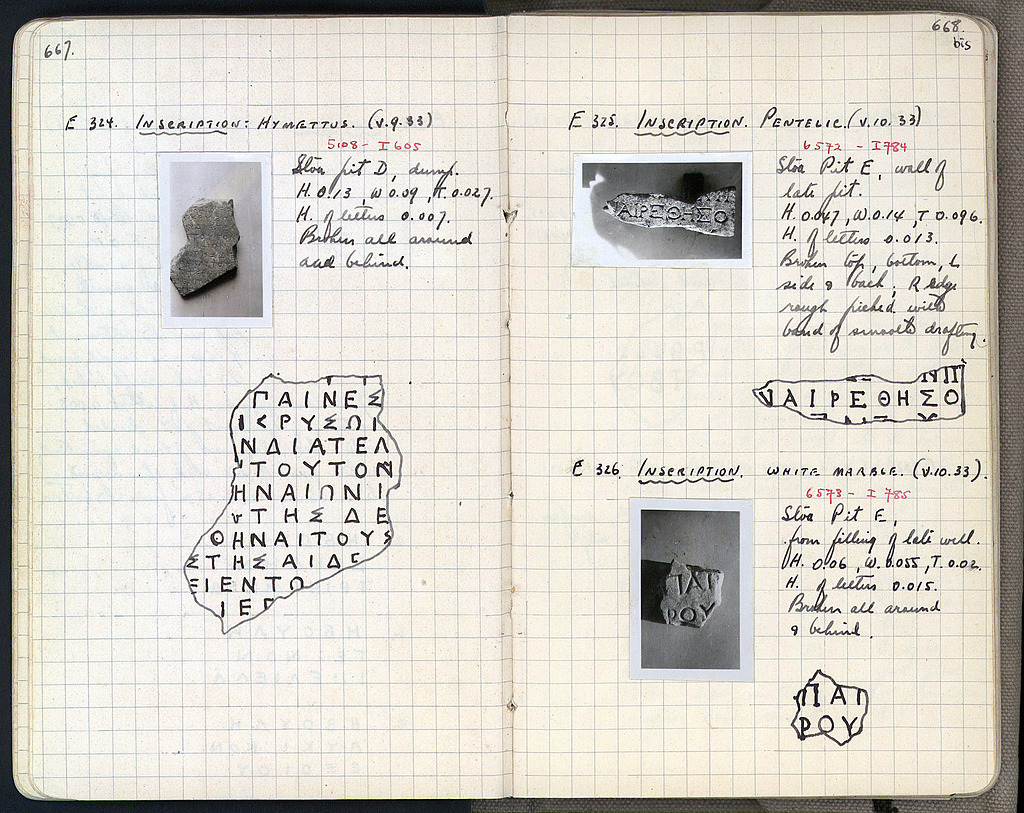 667.
E 324. INSCRIPTION: HYMETTUS. (V.9.33)
5108 - I 605
Stoa pit D, dump.
H. 0.13, W 0.09, T. 0.027.
H. of letters 0.007.
Broken all around
and behind.
ΓΑΙΝΕΣ
ΚΡΥΣΩΙ
ΝΔΙΑΤΕΛ
ΤΟΥΤΟΝ
ΗΝΑΙΩΝΙ
ΤΗΣ ΔΕ
ΘΗΝΑΙΤΟΥΣ
ΣΤΗΣΑΙΔΕ
ΞΙΕΝΤΩ
ΙΕΓ
668.
bis
E 325. INSCRIPTION. PENTELIC. (V.10.33)
6572 - I 784
Stoa Pit E, wall of
late pit.
H. 0.047, W. 0.14, T 0.096.
H. of letters 0.013.
Broken top, bottom, L
side & back; R edge
rough picked with
band of smooth drafting.
ΑΙΡΕΘΗΣΟ
ΑΙΡΕΘΗΣΟ
E 326. INSCRIPTION. WHITE MARBLE. (V.10.33).
6573 - I 785
Stoa Pit E,
from filling of late well.
H. 0.06, W. 0.055, T. 0.02.
H. of letters 0.015.
Broken all around
& behind.
ΠΑΓ
ΡΟΥ
ΠΑΓ
ΡΟΥ